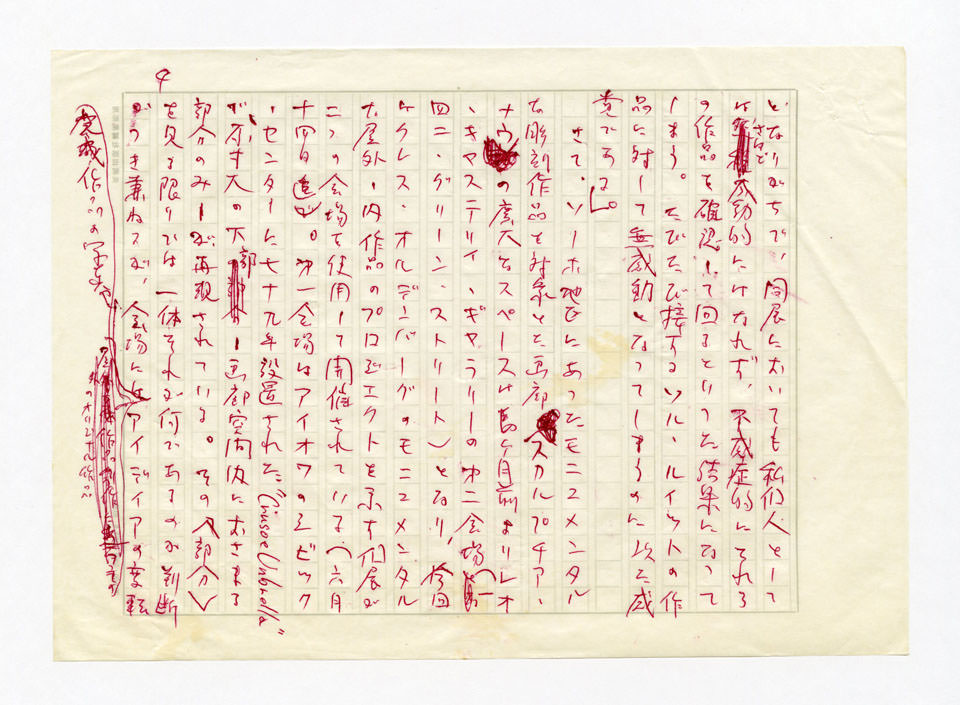 4
となりがちで、同展においても私個人として
は さほど 感動的にはなれず、不感症的にそれら
の作品を確認して回るといった結果になって
しまう。たびたび接するソル・ルイットの作
品に対して無感動となってしまうのに似た感
覚である。
さて、ソーホー地区にあったモニュメンタル
な彫刻作品を対象とした画廊、スカルプチア・
ナウの広大なスペースは 月前よりレオ
・キャステリィ・ギャラリーの第二会場（一
四二・グリーン・ストリート）となり、今回
はクレス・オルデンバーグのモニュメンタル
な屋外・内作品のプロジェクトを示す個展が
二つの会場を使用して開催されている（六月
十四日迄）。第一会場はアイオワのシビック
・センターに七十九年設置された“Crusoe Umbrella”
が原寸大の下部 ー画廊空間内におさまる
部分のみーが再現されている。その〈部分〉
を見る限りでは一体それが何であるのか判断
がつき兼ねるが、会場にはアイディアの変転
完成作品の写真や